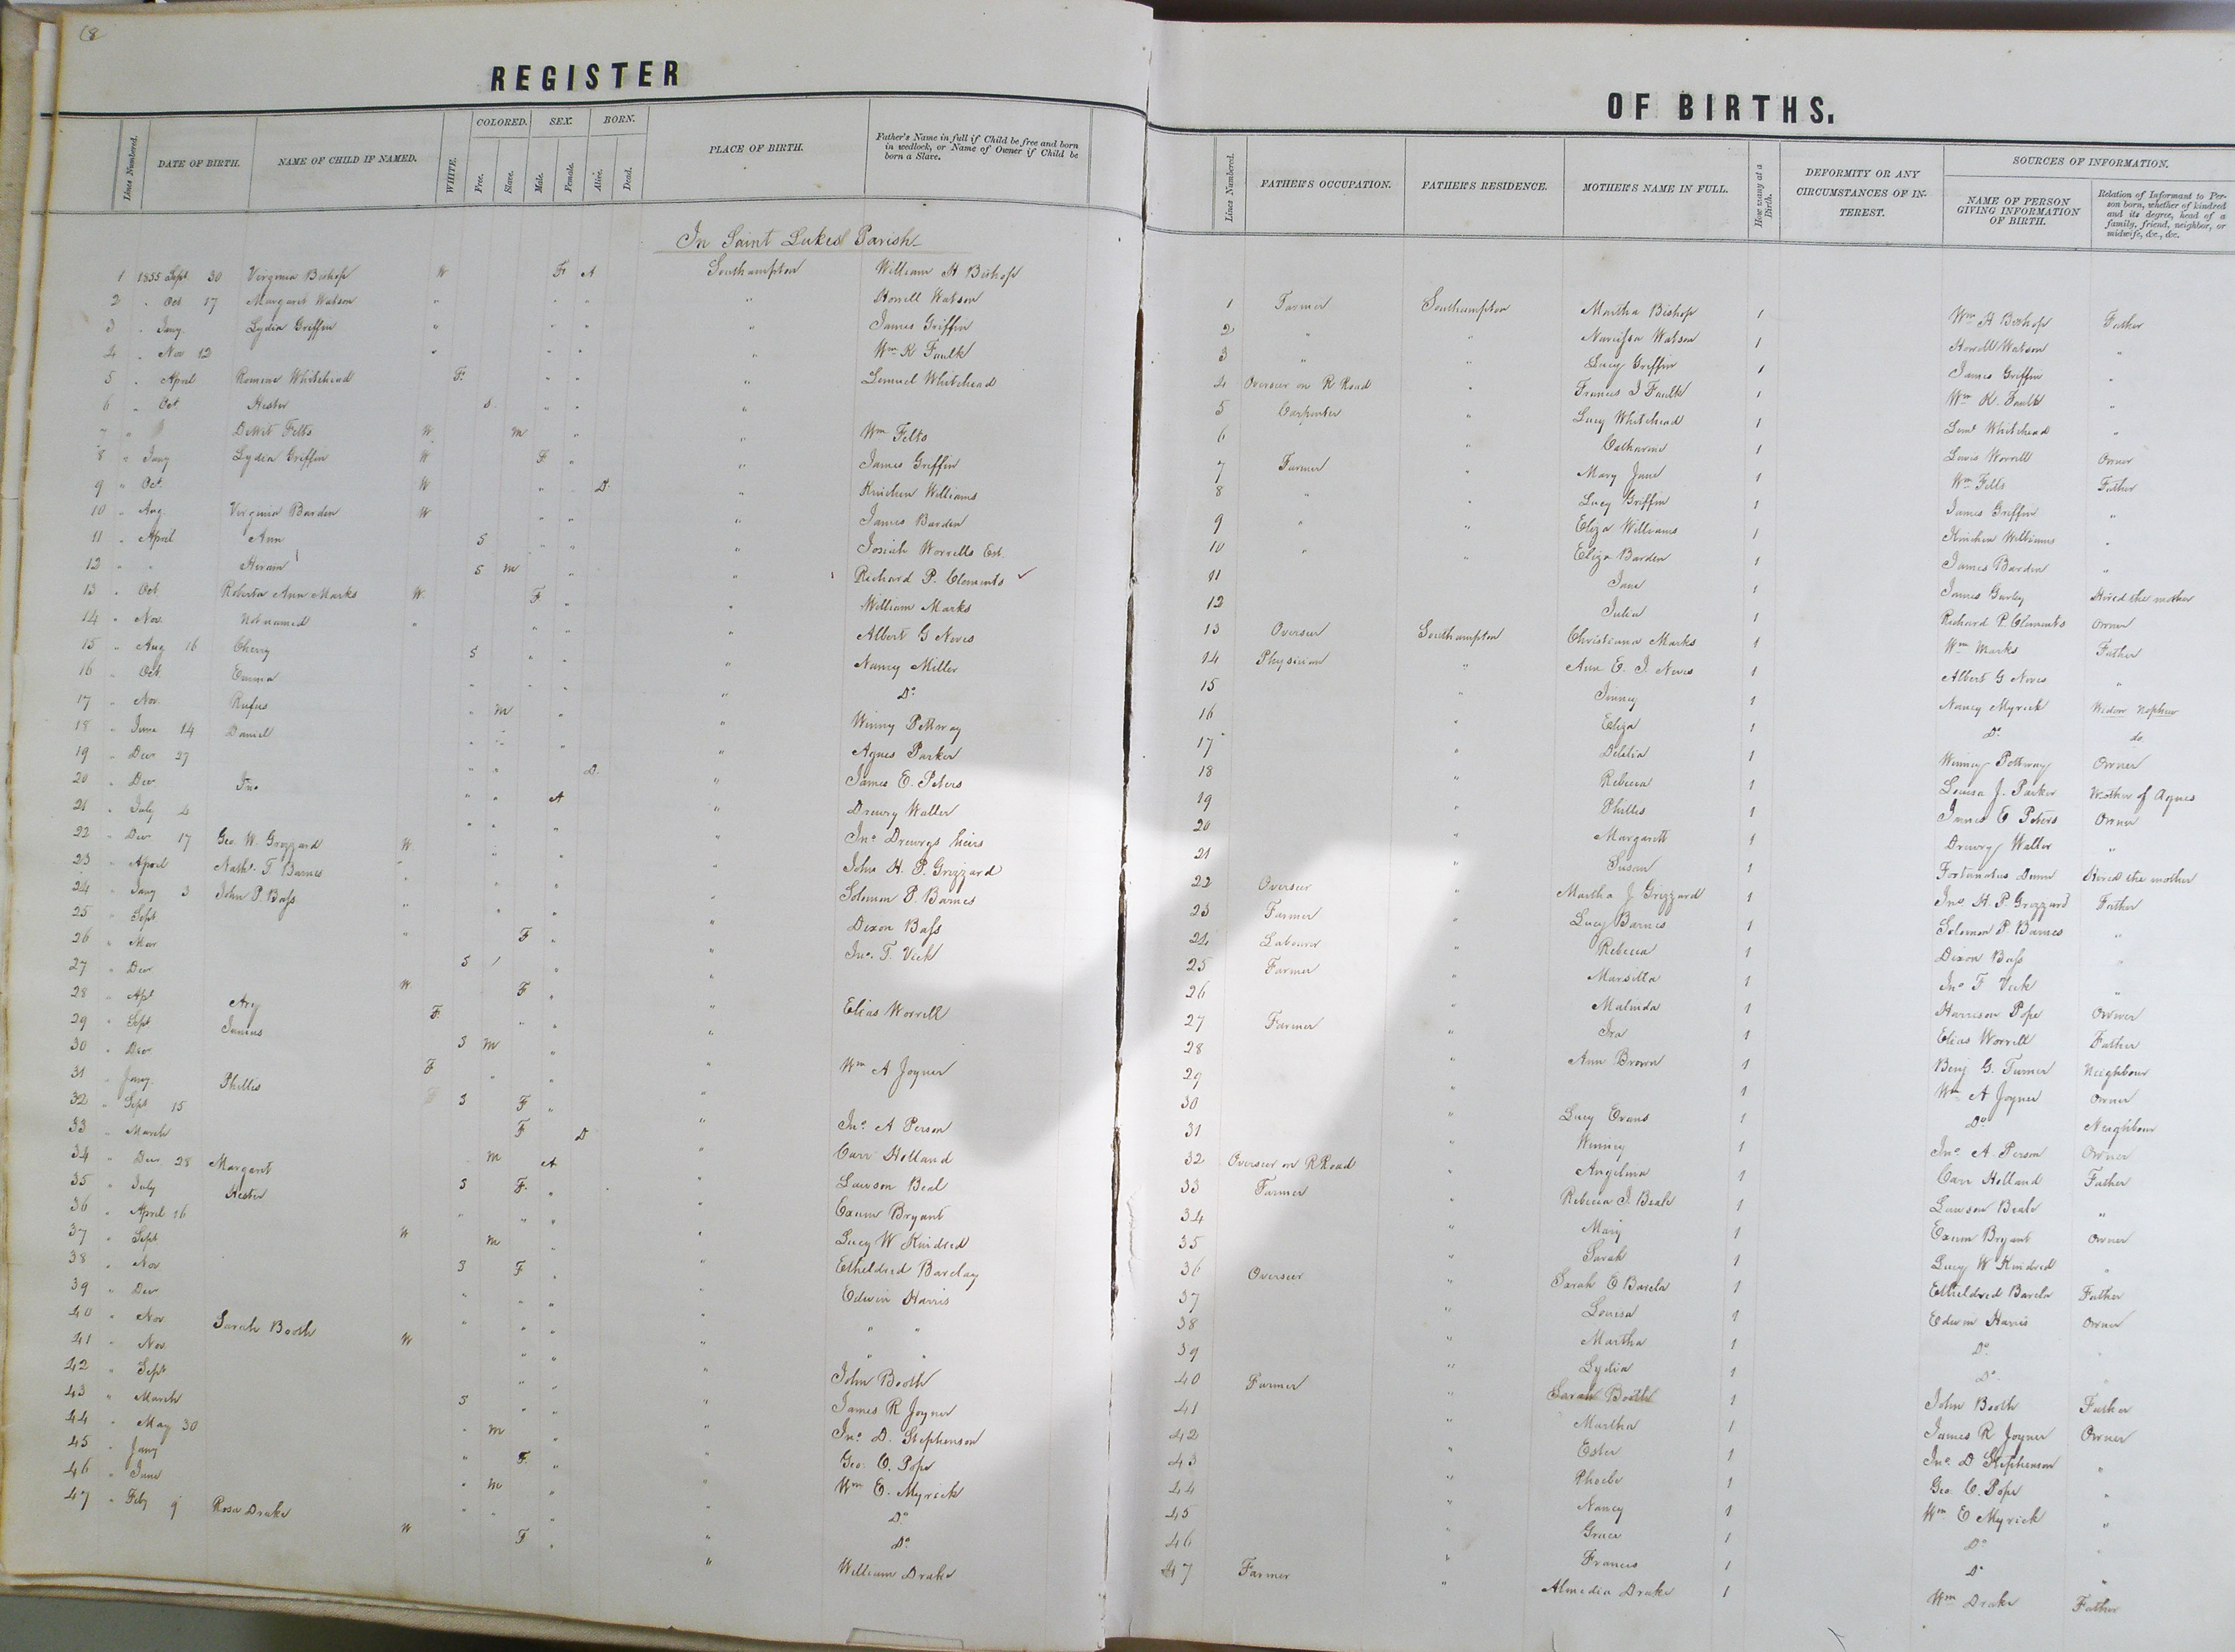 68
REGISTER
COLORED. SEX. BORN.
Lines Numbered. DATE OF BIRTH. NAME OF CHILD IF NAMED. WHITE. Free. Slave. Male. Female. Alive. Dead. PLACE OF BIRTH. Father's Name in full if Child be free and born in wedlock, or Name of Owner if Child be born a Slave.
In Saint Lukes Parish
1 1855 Sept 30 Virginia Bishop W F A Southampton William H Bishop
2 " Oct 17 Margaret Watson " " " " Howell Watson
3 " Jany Lydia Griffin " " " " James Griffin
4 " Nov 12 " " " " Wm K Faulk
5 " April Romene Whitehead F " " " Lemuel Whitehead
6 " Oct Hester S " " "
7 " " DeWit Felts W m " " Wm Felts
8 " Jany Lydia Griffin W F " " James Griffin
9 " Oct W " D " Kinchen Williams
10 " Aug Virginia Barden W " " " James Barden
11 " April Ann S " " " Josiah Worrells Est.
12 " " Hiram S m " " Richard P. Clements ✓
13 " Oct Roberta Ann Marks W F " " William Marks
14 " Nov Not named " " " " Albert G Neves
15 " Aug 16 Cherry S " " " Nancy Miller
16 " Oct Emma " " " " Do
17 " Nov Rufus " m " " Winny
18 " June 14 Daniel " " " " Agnes Parker
19 " Decr 27 " " D " James E. Peters
20 " Decr Jno " " A " Drewry Walter
21 " July 4 " " " " Jno Drewrys heirs
22 " Decr 17 Geo. W. Grizzard W " " " John H. P. Grizzard
23 " April Nathl. T. Barnes " " " " Solomon P. Barnes
24 " Jany 3 John P. Bass " " " " Dixon Bass
25 " Sept " F " " Jno. T. Vick
26 " Mar S / " "
27 " Decr W F " " Elias Worrell
28 " Apl Ary F " " "
29 " Sept Junius S m " " Wm A Joyner
30 " Decr F " " "
31 " Jany Phillis S F " " Jno. A Person
32 " Sept 15 F D " Carr Holland
33 " March m A " Lawson Beal
34 " Decr 28 Margaret S F " " Exum Bryant
35 " July Hester " " " " Lucy W Kindred
36 " April 16 W m " " Etheldred Barclay
37 " Sept S F " " Edwin Harris
38 " Nov " " " " " "
39 " Decr " " " " " "
40 " Nov Sarah Booth W " " " John Booth
41 " Nov S " " " James R Joyner
42 " Sept " m " " Jno. D. Stephenson
43 " March " F " " Geo. C. Pope
44 " May 30 " m " " Wm E. Myrick
45 " Jany " " " " Do
46 " June F " " Do
47 " Feby 9 Rosa Drake W " William Drake
OF BIRTHS.
SOURCES OF INFORMATION.
Lines Numbered. FATHER'S OCCUPATION. FATHER'S RESIDENCE. MOTHER'S NAME IN FULL. How many at a Birth. DEFORMITY OR ANY CIRCUMSTANCES OF INTEREST. NAME OF PERSON GIVING INFORMATION OF BIRTH. Relation of Informant to Person born, whether of kindred and its degree, head of a family, friend, neighbor, or midwife, &c., &c.
1 Farmer Southampton Martha Bishop 1 Wm H Bishop Father
2 " " Narcissa Watson 1 Howell Watson "
3 " " Lucy Griffin 1 James Griffin "
4 Overseer on R Road " Frances J Faulk 1 Wm K. Faulk "
5 Carpenter " Lucy Whitehead 1 Leml Whitehead "
6 " Catharine 1 Lewis Worrell Owner
7 Farmer " Mary Jane 1 Wm Felts Father
8 " " Lucy Griffin 1 James Griffin "
9 " " Eliza Williams 1 Kinchen Williams "
10 " " Eliza Barden 1 James Barden "
11 Jane 1 James Gurley Hired the mother
12 Julia 1 Richard P. Clements Owner
13 Overseer Southampton Christiana Marks 1 Wm Marks Father
14 Physician " Ann E. J. Neves 1 Albert G Neves "
15 " Jenney 1 Nancy Myrick Widow Nephew
16 " Eliza 1 Do do
17 " Delilia 1 Winney Owner
18 " Rebecca 1 Louisa J. Parker Mother of Agnes
19 " Phillis 1 James E Peters Owner
20 " Margarett 1 Drewry Walter "
21 " Susan 1 Fortunatus Dunn Hired the mother
22 Overseer " Martha J Grizzard 1 Jno H. P. Grizzard Father
23 Farmer " Lucy Barnes 1 Solomon P Barnes "
24 Labourer " Rebecca 1 Dixon Bass "
25 Farmer " Marsilla 1 Jno T Vick "
26 " Malinda 1 Harrison Pope Owner
27 Farmer " Ira 1 Elias Worrell Father
28 " Ann Brown 1 Benj G. Turner Neighbour
29 " 1 Wm A Joyner Owner
30 " Lucy Evans 1 Do Neighbour
31 " Winney 1 Jno. A. Person Owner
32 Overseer on R Road " Angelina 1 Carr Holland Father
33 Farmer " Rebecca J. Beale 1 Lawson Beale "
34 " Mary 1 Exum Bryant Owner
35 " Sarah 1 Lucy W Kindred "
36 Overseer " Sarah E Barcla 1 Etheldred Barcla Father
37 " Louisa 1 Edwin Harris Owner
38 " Martha 1 Do "
39 " Lydia 1 Do "
40 Farmer " Sarah Booth 1 John Booth Father
41 " Martha 1 James R Joyner Owner
42 " Ester 1 Jno. D Stephenson "
43 " Phoebe 1 Geo. C. Pope "
44 " Nancy 1 Wm E Myrick "
45 " Grace 1 Do "
46 " Frances 1 Do "
47 Farmer " Almedia Drake 1 Wm Drake Father